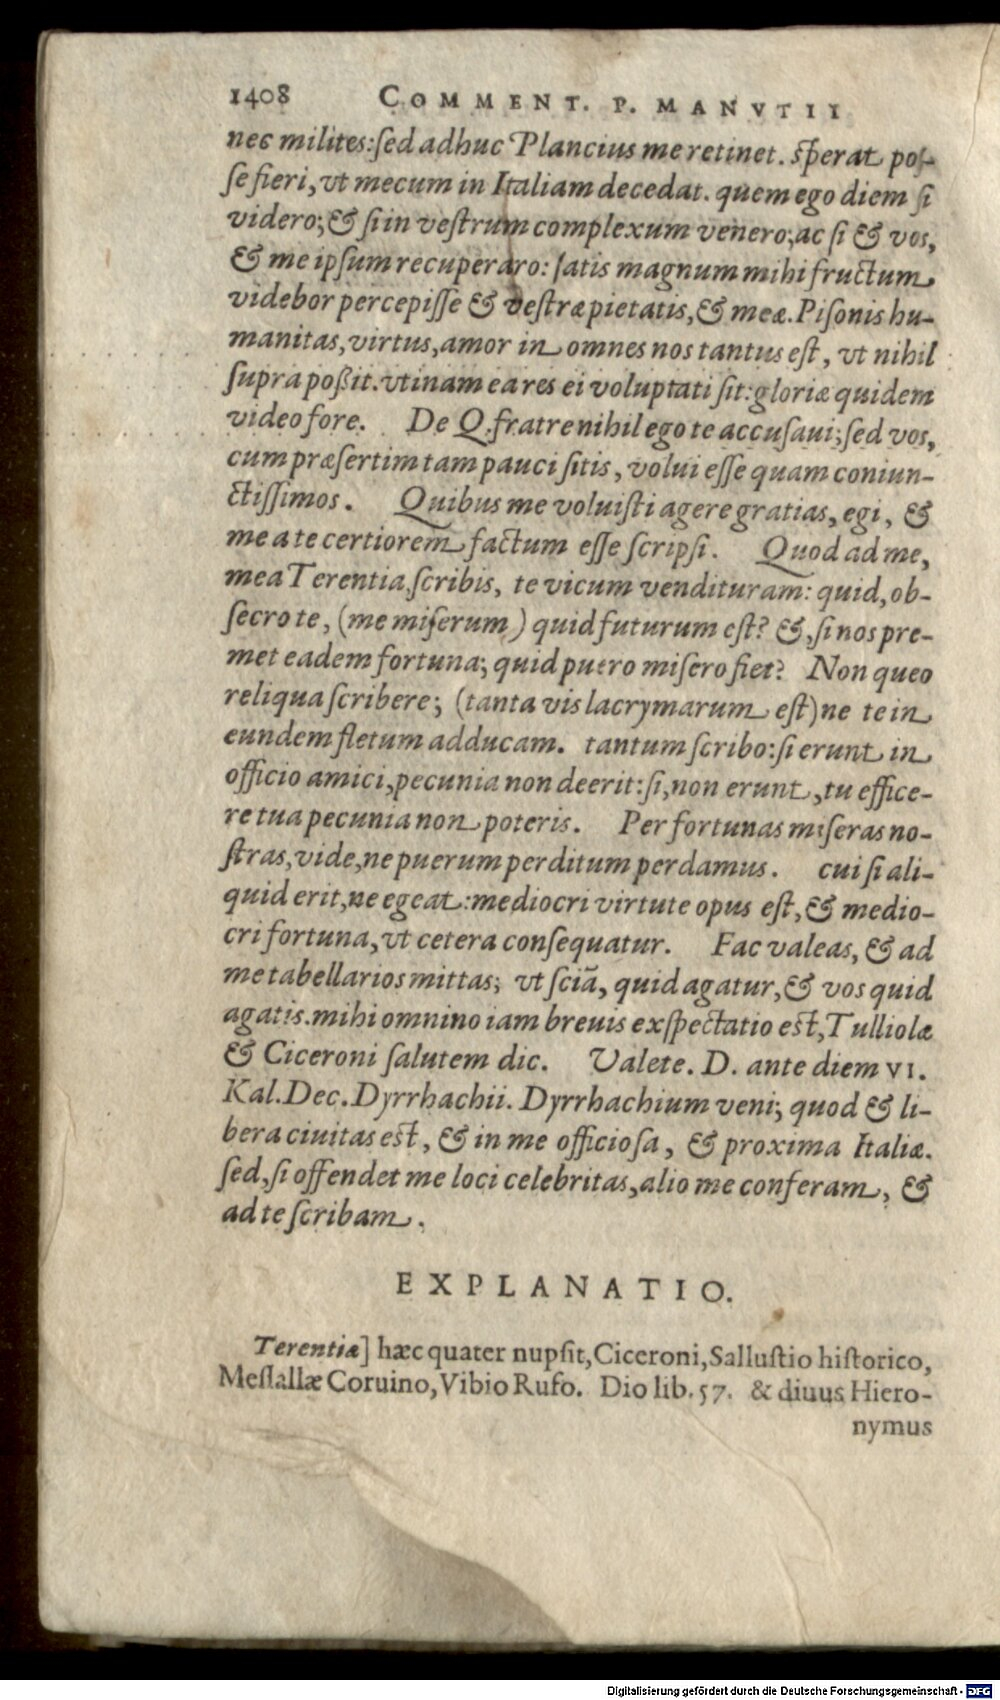 1408 COMMENT. P. MANVTII
nec milites: ſed adhuc Plancius me retinet. ſperat poſ-
ſe fieri, vt mecum in Italiam decedat. quem ego diem ſi
videro; & ſi in veſtrum complexum venero; ac ſi & vos,
& me ipſum recuperaro: ſatis magnum mihi fructum
videbor percepiſſe & veſtræ pietatis, & meæ. Piſonis hu-
manitas, virtus, amor in omnes nos tantus eſt, vt nihil
ſupra poßit. vtinam ea res ei voluptati ſit: gloriæ quidem
video fore. De Q. fratre nihil ego te accuſaui; ſed vos,
cum præſertim tam pauci ſitis, volui eſſe quam coniun-
ctiſſimos. Quibus me voluiſti agere gratias, egi, &
me a te certiorem factum eſſe ſcripſi. Quod ad me,
mea Terentia, ſcribis, te vicum vendituram: quid, ob-
ſecro te, (me miſerum) quid futurum eſt? &, ſi nos pre-
met eadem fortuna; quid puero miſero fiet? Non queo
reliqua ſcribere; (tanta vis lacrymarum eſt) ne te in
eundem fletum adducam. tantum ſcribo: ſi erunt in
officio amici, pecunia non deerit: ſi, non erunt, tu effice-
re tua pecunia non poteris. Per fortunas miſeras no-
ſtras, vide, ne puerum perditum perdamus. cui ſi ali-
quid erit, ne egeat: mediocri virtute opus eſt, & medio-
cri fortuna, vt cetera conſequatur. Fac valeas, & ad
me tabellarios mittas; vt ſciã, quid agatur, & vos quid
agatis. mihi omnino iam breuis exſpectatio eſt, Tulliolæ
& Ciceroni ſalutem dic. Valete. D. ante diem VI.
Kal. Dec. Dyrrhachii. Dyrrhachium veni; quod & li-
bera ciuitas eſt, & in me officioſa, & proxima Italiæ.
ſed, ſi offendet me loci celebritas, alio me conferam, &
ad te ſcribam.
EXPLANATIO.
Terentiæ] hæc quater nupſit, Ciceroni, Salluſtio hiſtorico,
Meſſallæ Coruino, Vibio Rufo. Dio lib. 57. & diuus Hiero-
nymus
Digitalisierung gefördert durch die Deutsche Forschungsgemeinschaft - DFG